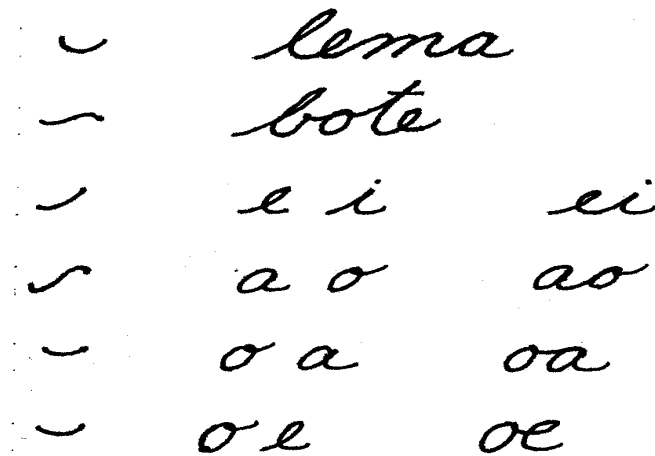 lema
bote
e i ei
a o ao
o a oa
o e oe